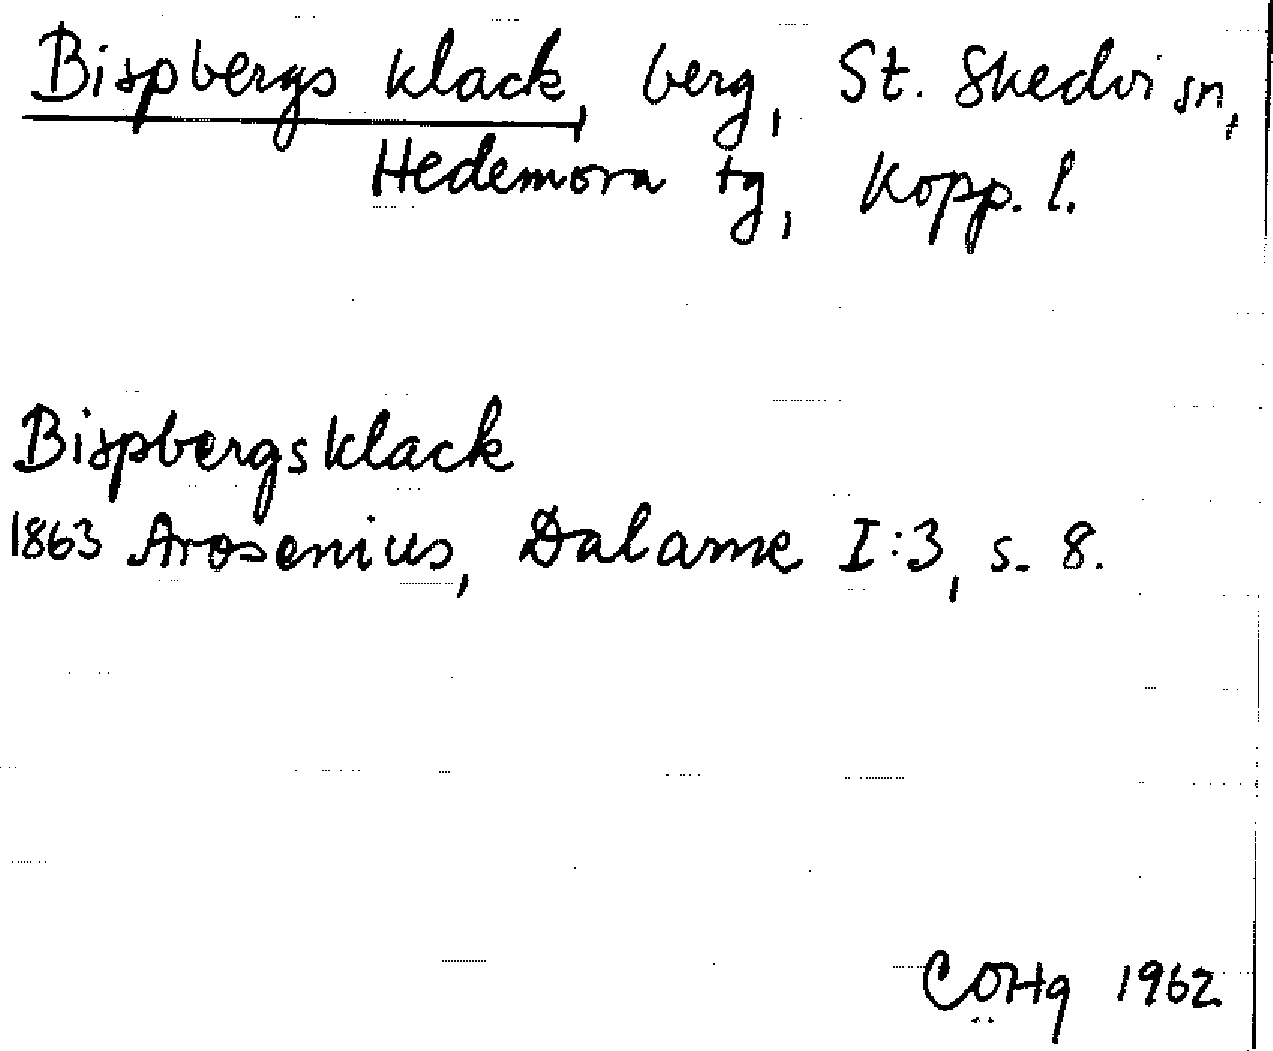 Bispbergs klack, berg, St. Skedvi sn,
Hedemora tg, Kopp. l.
Bispbergsklack
1863 Arosenius, Dalarne I:3, s. 8.
COHg 1962